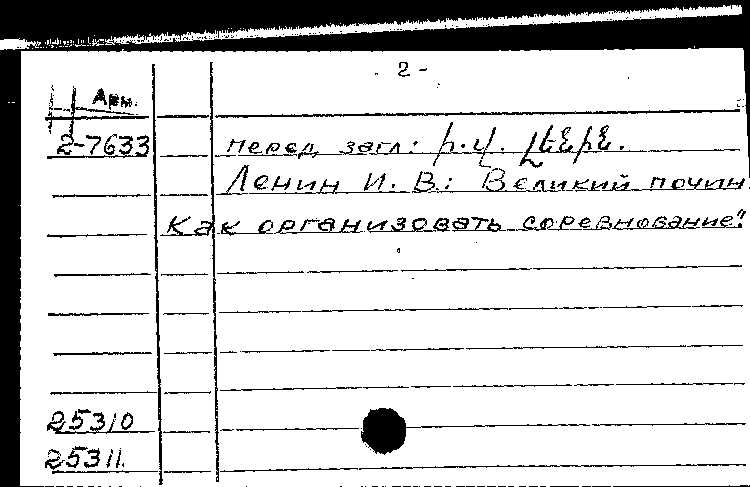 - 2 -
Арм.
2-7633 перед загл: Ի. Վ. Լենին.
Ленин И. В.: Великий почин.
Как организовать соревнование".
25310
25311.